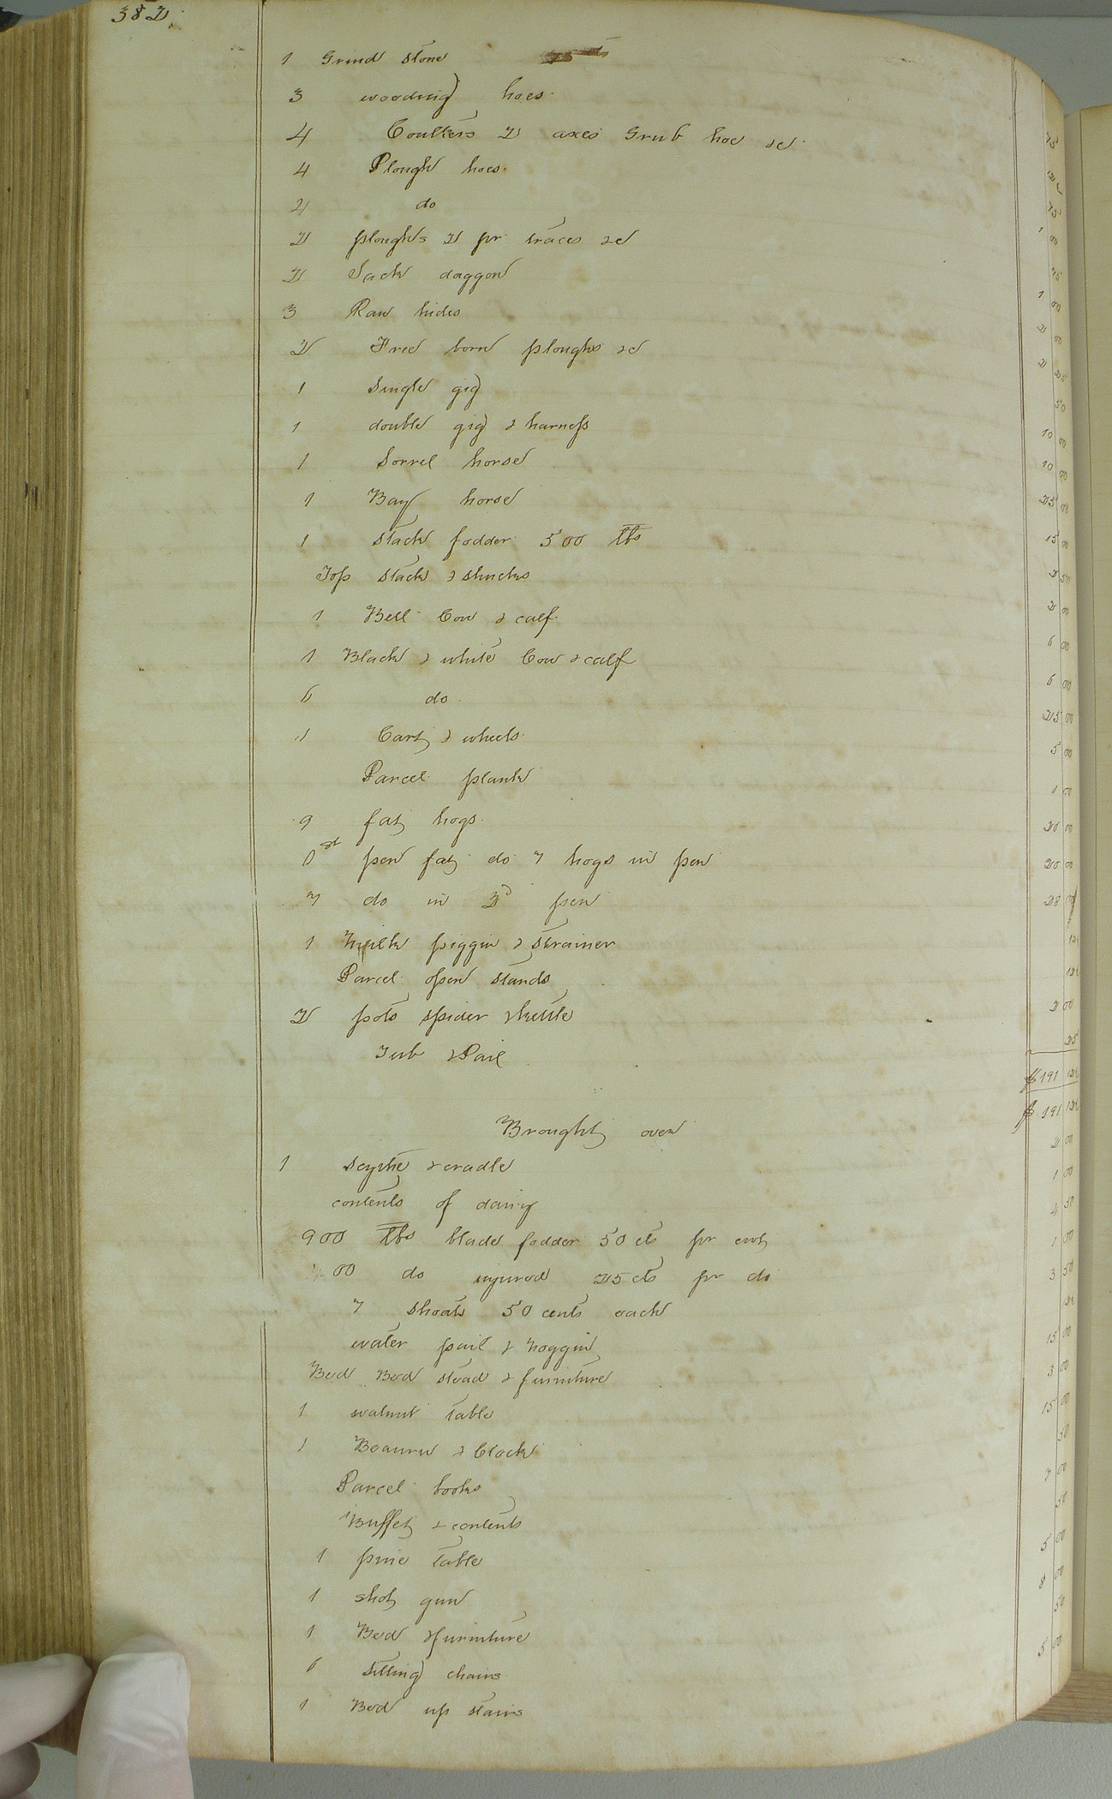 382
1 Grind stone 75 cts
3 weeding hoes 25
4 Coulters 2 axes Grub hoe &c
4 Plough hoes 75
2 do 1 00
2 ploughs 2 pr traces &c
2 Jack waggon 1 00
3 Raw hides 2 00
2 Fred born ploughs &c 2 25
1 Single gig 50
1 double gig & harness 10 00
1 Sorrel horse 10 00
1 Bay horse 25 00
1 stack fodder 500 lbs 15 00
Top stack & shucks 2 50
1 Bell Cow & calf 2 00
1 Black & white Cow & calf 6 00
6 do 6 00
1 Cart & wheels 25 00
Parcel plank 5 00
9 fat hogs 1 00
1st pen fat do 7 hogs in pen 20 00
7 do in 2d pen 28
1 milk piggin & strainer 12
Parcel open stands 12
2 pots spider & kettle 2 00
Tub & Pail 25
$191 12
Brought over $191 12
1 scythe & cradle 2 00
contents of dairy 1 00
900 lbs blade fodder 50 cts pr cwt 4 50
00 do injured 25 cts pr do 1 00
7 shoats 50 cents each 3 50
water pail & noggin
Bed Bed stead & furniture 15 00
1 walnut table 3 00
1 Beauru & Clock 15 00
Parcel books 50
Buffet & contents 7 00
1 pine table 50
1 shot gun 5 00
1 Bed & furniture 8 00
6 sitting chairs 50
1 Bed up stairs 5 00